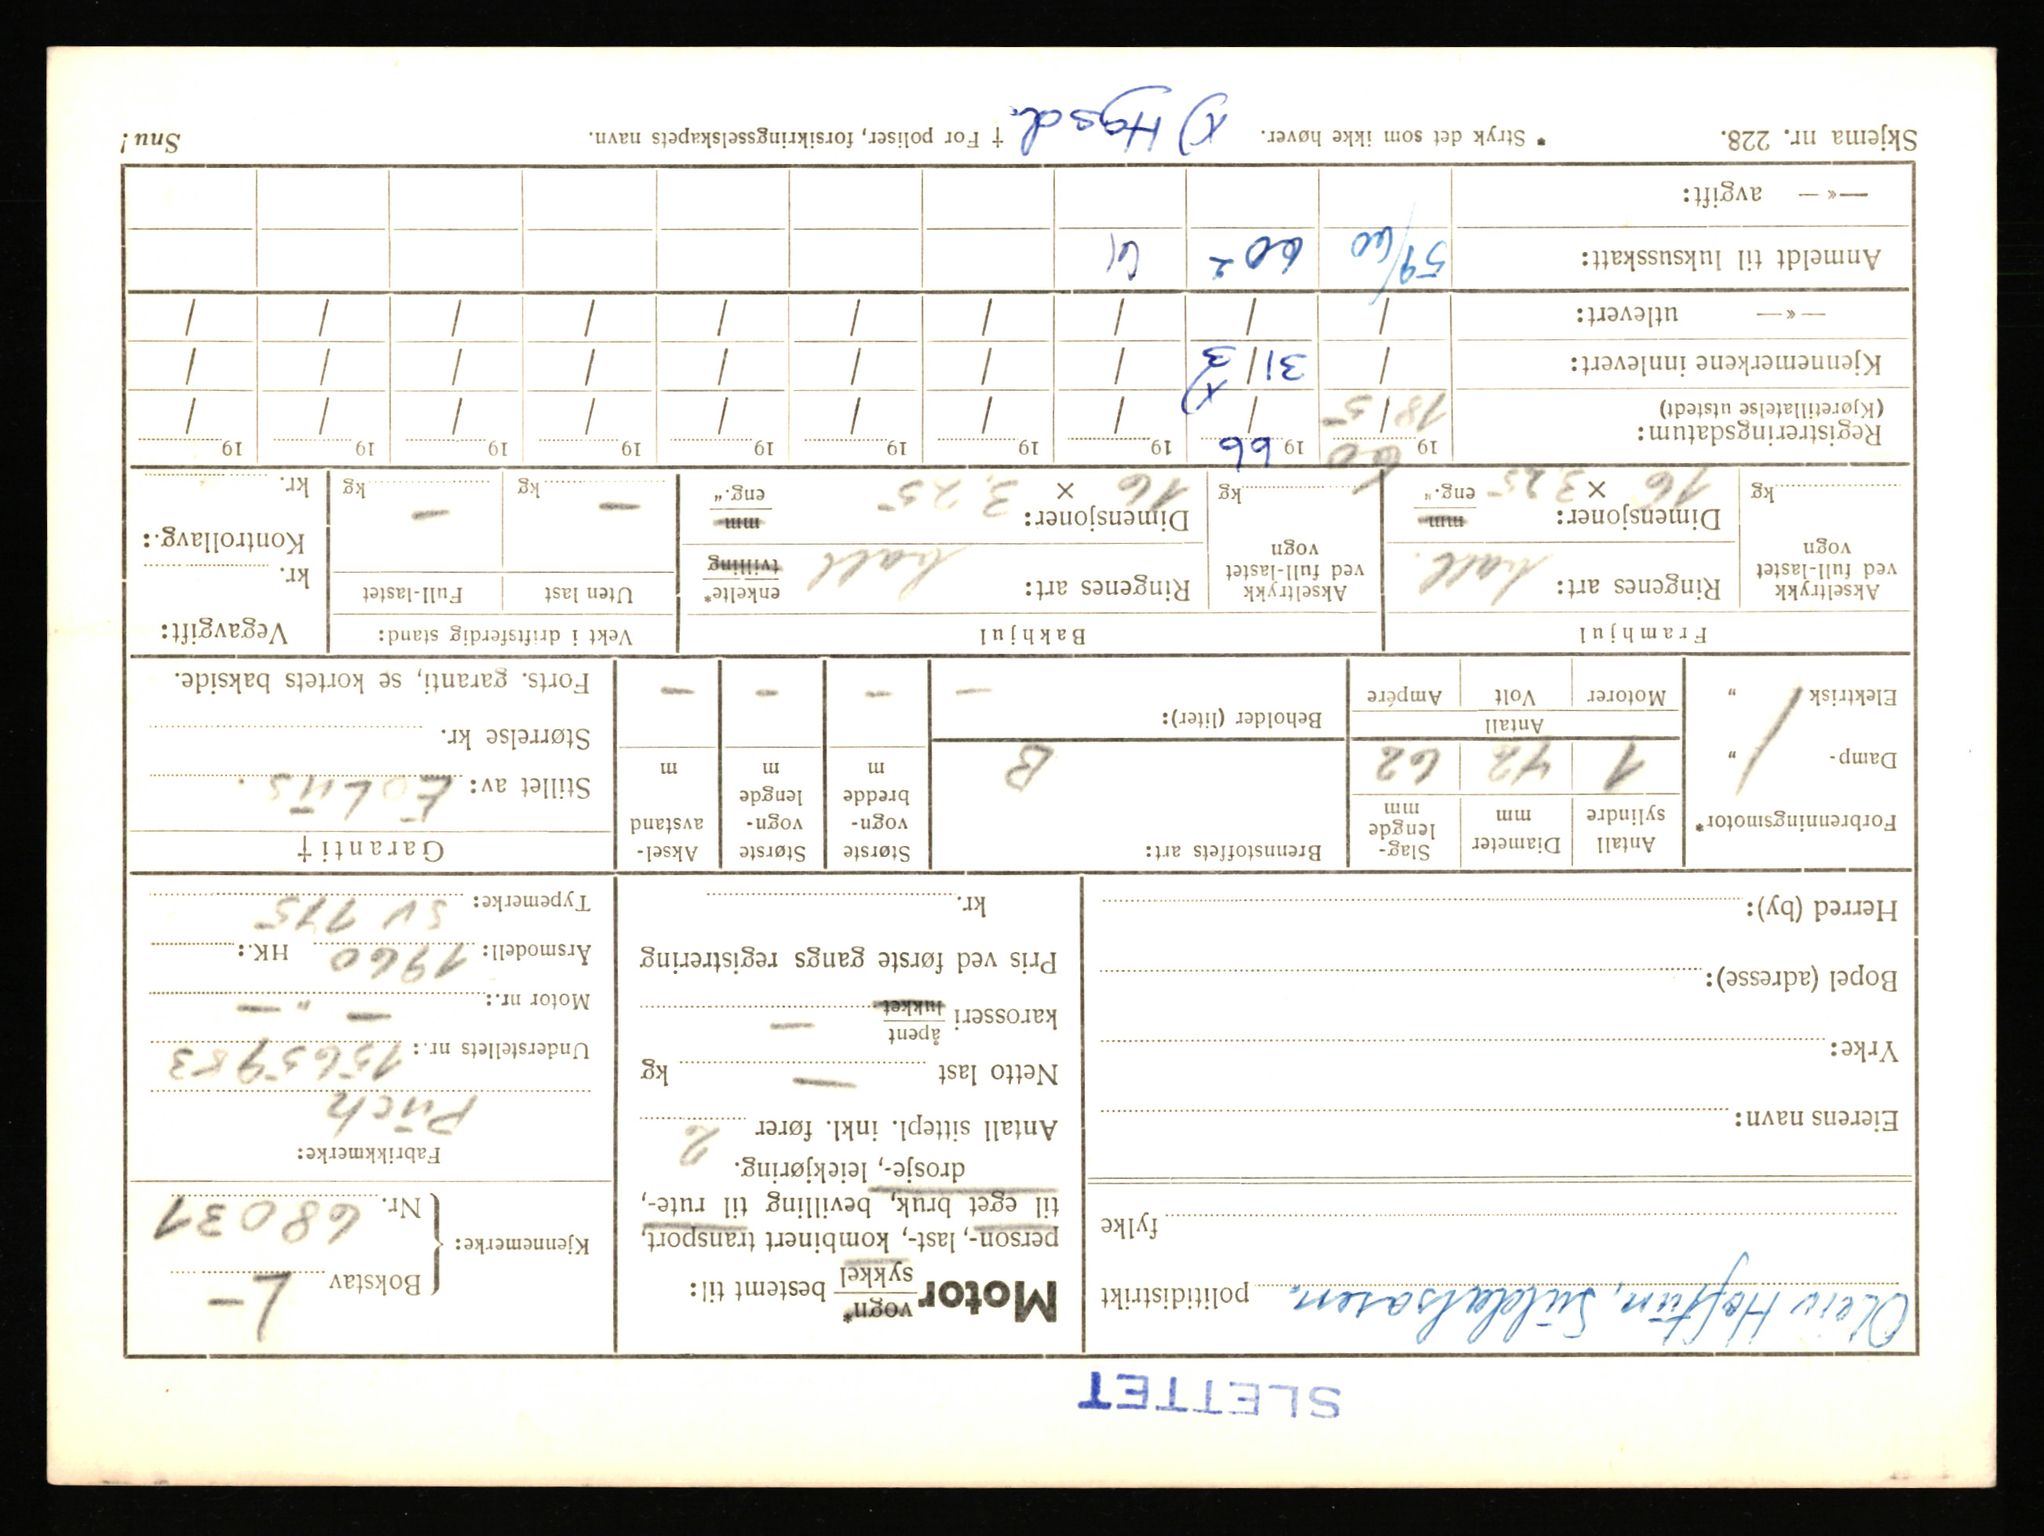 SLETTET
Oleiv Hoftun, Suldalsosen.
politidistrikt
fylke
Eierens navn:
Yrke:
Bopel (adresse):
Herred (by):
Motor vogn* sykkel bestemt til:
person-, last-, kombinert transport,
til eget bruk, bevilling til rute-,
drosje-, leiekjøring.
Antall sittepl. inkl. fører 2
Netto last — kg
karosseri åpent lukket —
Pris ved første gangs registrering
kr.
Kjennemerke: { Bokstav L-
Nr. 68031
Fabrikkmerke:
Puch
Understellets nr.: 15659583
Motor nr.: — " —
Årsmodell: 1960 HK.:
Typemerke: SV 175
Forbrenningsmotor*
Damp- "
Elektrisk "
Antall sylindre Diameter mm Slag- lengde mm
1 42 62
Antall
Motorer Volt Ampére
Brennstoffets art:
B
Beholder (liter): —
Største vogn- bredde m —
Største vogn- lengde m —
Aksel- avstand m —
Garanti †
Stillet av: Eolus.
Størrelse kr.
Forts. garanti, se kortets bakside.
Framhjul
Akseltrykk ved full-lastet vogn kg
Ringenes art: hall.
Dimensjoner: 16 × 3,25 mm eng."
Bakhjul
Akseltrykk ved full-lastet vogn kg
Ringenes art: hall enkelte* tvilling
Dimensjoner: 16 × 3,25 mm eng."
Vekt i driftsferdig stand:
Uten last Full-lastet
— kg — kg
Vegavgift:
kr.
Kontrollavg.:
kr.
Registreringsdatum:
(Kjøretillatelse utstedt)
19 60 19 66 19 19 19 19 19 19 19
18/5 / / / / / / / /
Kjennemerkene innlevert: / 31/3 x) / / / / / / /
—«— utlevert: / / / / / / / / /
Anmeldt til luksusskatt: 59/60 60 2 61
—«— avgift:
Skjema nr. 228. * Stryk det som ikke høver. † For poliser, forsikringsselskapets navn. Snu!
x) Hgsd.